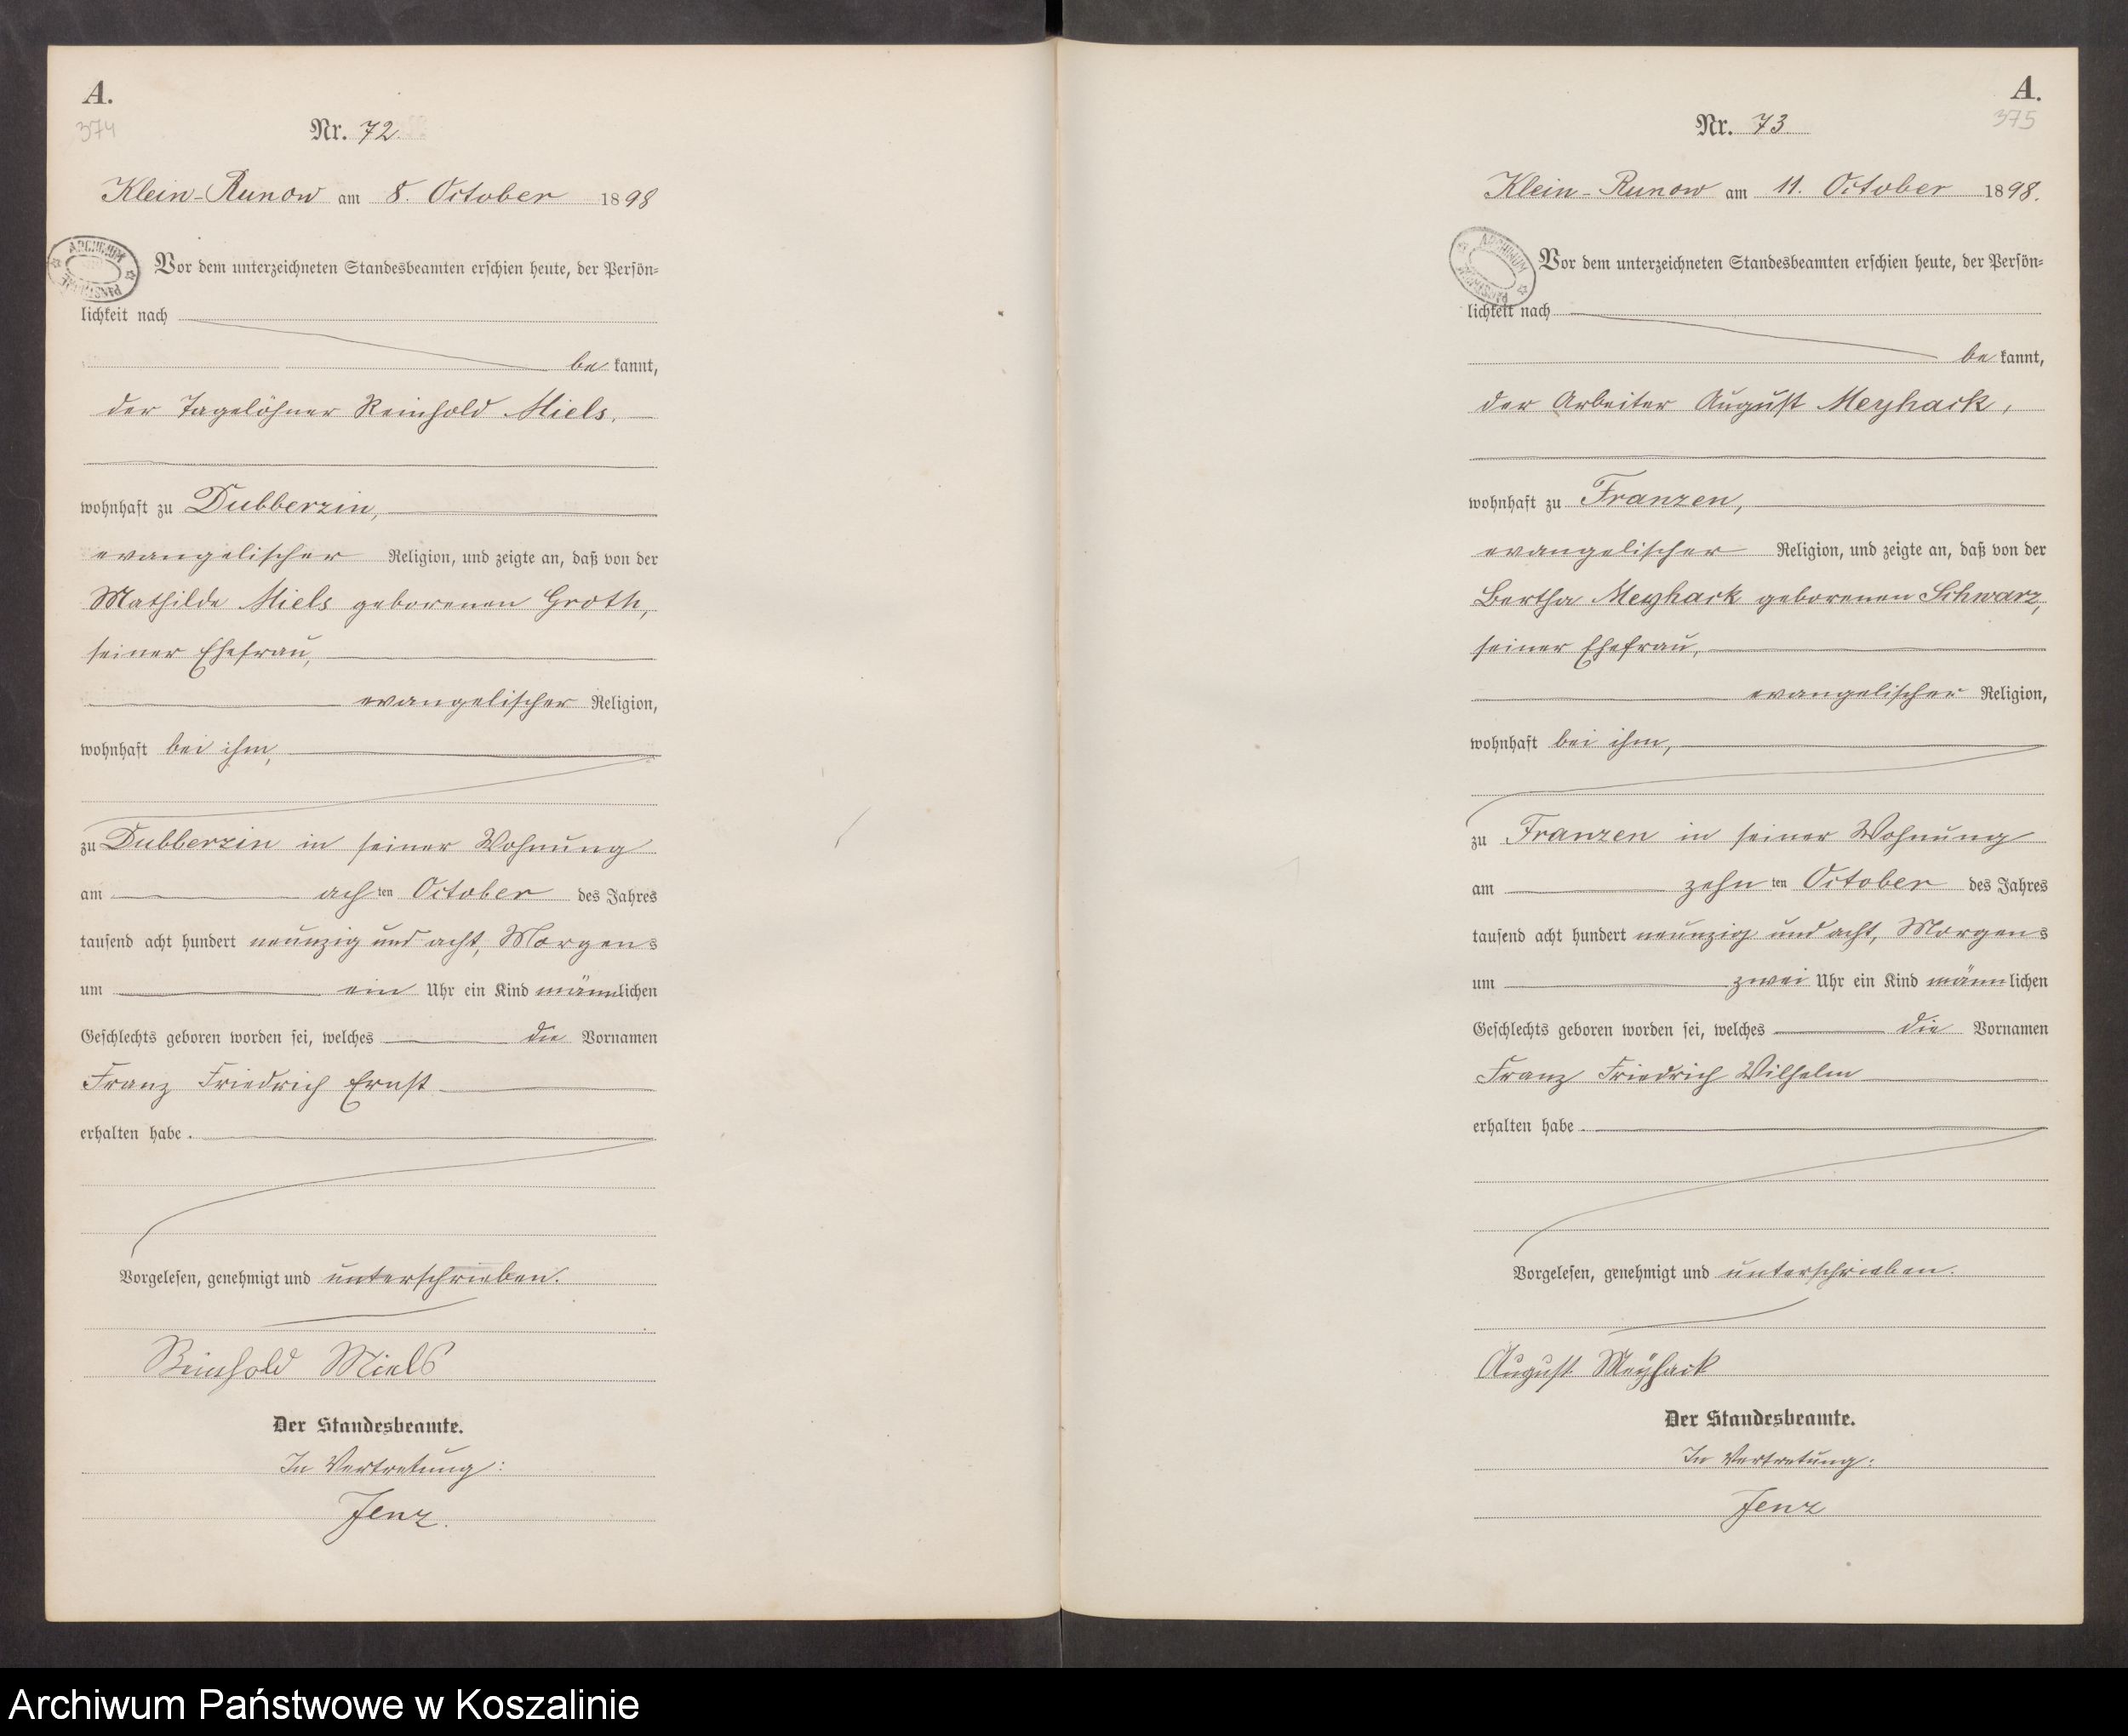 A.
374
Nr. 72.
Klein-Runow am 8. October 1898
ARCHIWUM
Vor dem unterzeichneten Standesbeamten erschien heute, der Persön-
lichkeit nach
be kannt,
der Tagelöhner Reinhold Miels,
wohnhaft zu Dubberzin,
evangelischer Religion, und zeigte an, daß von der
Mathilde Miels geborenen Groth,
seiner Ehefrau,
evangelischer Religion,
wohnhaft bei ihm,
zu Dubberzin in seiner Wohnung
am achten October des Jahres
tausend acht hundert neunzig und acht, Morgens
um ein Uhr ein Kind männlichen
Geschlechts geboren worden sei, welches die Vornamen
Franz Friedrich Ernst
erhalten habe.
Vorgelesen, genehmigt und unterschrieben.
Reinhold Miels
Der Standesbeamte.
In Vertretung:
Jenz.
A.
375
Nr. 73
Klein-Runow am 11. October 1898.
ARCHIWUM
Vor dem unterzeichneten Standesbeamten erschien heute, der Persön-
lichkeit nach
be kannt,
der Arbeiter August Meyhack,
wohnhaft zu Franzen,
evangelischer Religion, und zeigte an, daß von der
Bertha Meyhack geborenen Schwarz,
seiner Ehefrau,
evangelischer Religion,
wohnhaft bei ihm,
zu Franzen in seiner Wohnung
am zehnten October des Jahres
tausend acht hundert neunzig und acht, Morgens
um zwei Uhr ein Kind männlichen
Geschlechts geboren worden sei, welches die Vornamen
Franz Friedrich Wilhelm
erhalten habe.
Vorgelesen, genehmigt und unterschrieben.
August Meyhack
Der Standesbeamte.
In Vertretung:
Jenz
Archiwum Państwowe w Koszalinie